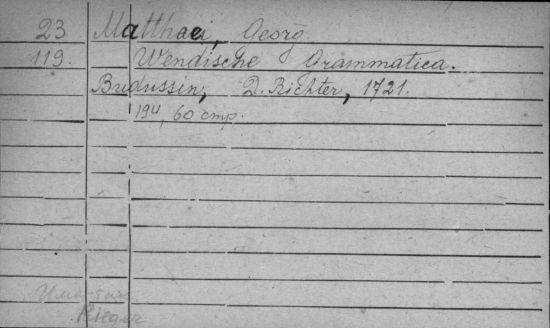 23 Matthaei, Georg
119. Wendische Grammatica.
Budussin, D. Richter, 1721.
194, 60 стр.
Rieger